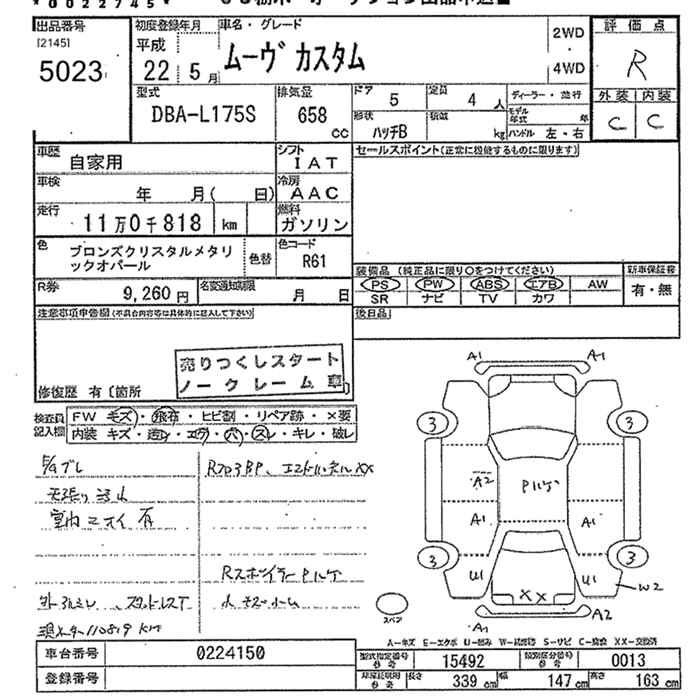 出品番号
[2145]
5023
初度登録年月
平成
22 5 月
車名・グレード
ムーヴ カスタム
2WD
4WD
評価点
R
外装 内装
C C
型式
DBA-L175S
排気量
658
CC
ドア
5
定員
4 人
形状
ハッチB
積載
kg
ディーラー・並行
モデル年式 年
ハンドル 左・右
車歴
自家用
シフト
IAT
車検
年 月( 日)
冷房
AAC
走行
11万0千818 km
燃料
ガソリン
色
ブロンズクリスタルメタリ
ックオパール
色替
色コード
R61
R券
9,260 円
名変通知期限
月 日
セールスポイント(正常に機能するものに限ります)
装備品 (純正品に限り○をつけてください)
新車保証書
PS PW ABS エアB AW
有・無
SR ナビ TV カワ
後日品
注意事項申告欄(不具合内容等は具体的に記入して下さい)
売りつくしスタート
ノークレーム車
修復歴 有〔箇所
検査員
記入欄
FW キズ・飛石・ヒビ割・リペア跡・×要
内装 キズ・汚レ・エグレ・穴・スレ・キレ・破レ
天張り
室内ニオイ有
RスポイラーPルケ
現メーター110819km
A1 A1
3 3
A2 Pルケ
A1 A1
3 3
U1 U1
XX
W2
A1 A2
スペア
車台番号
0224150
登録番号
型式指定番号
参考
15492
類別区分番号
参考
0013
長さ
339 cm
幅
147 cm
高さ
163 cm